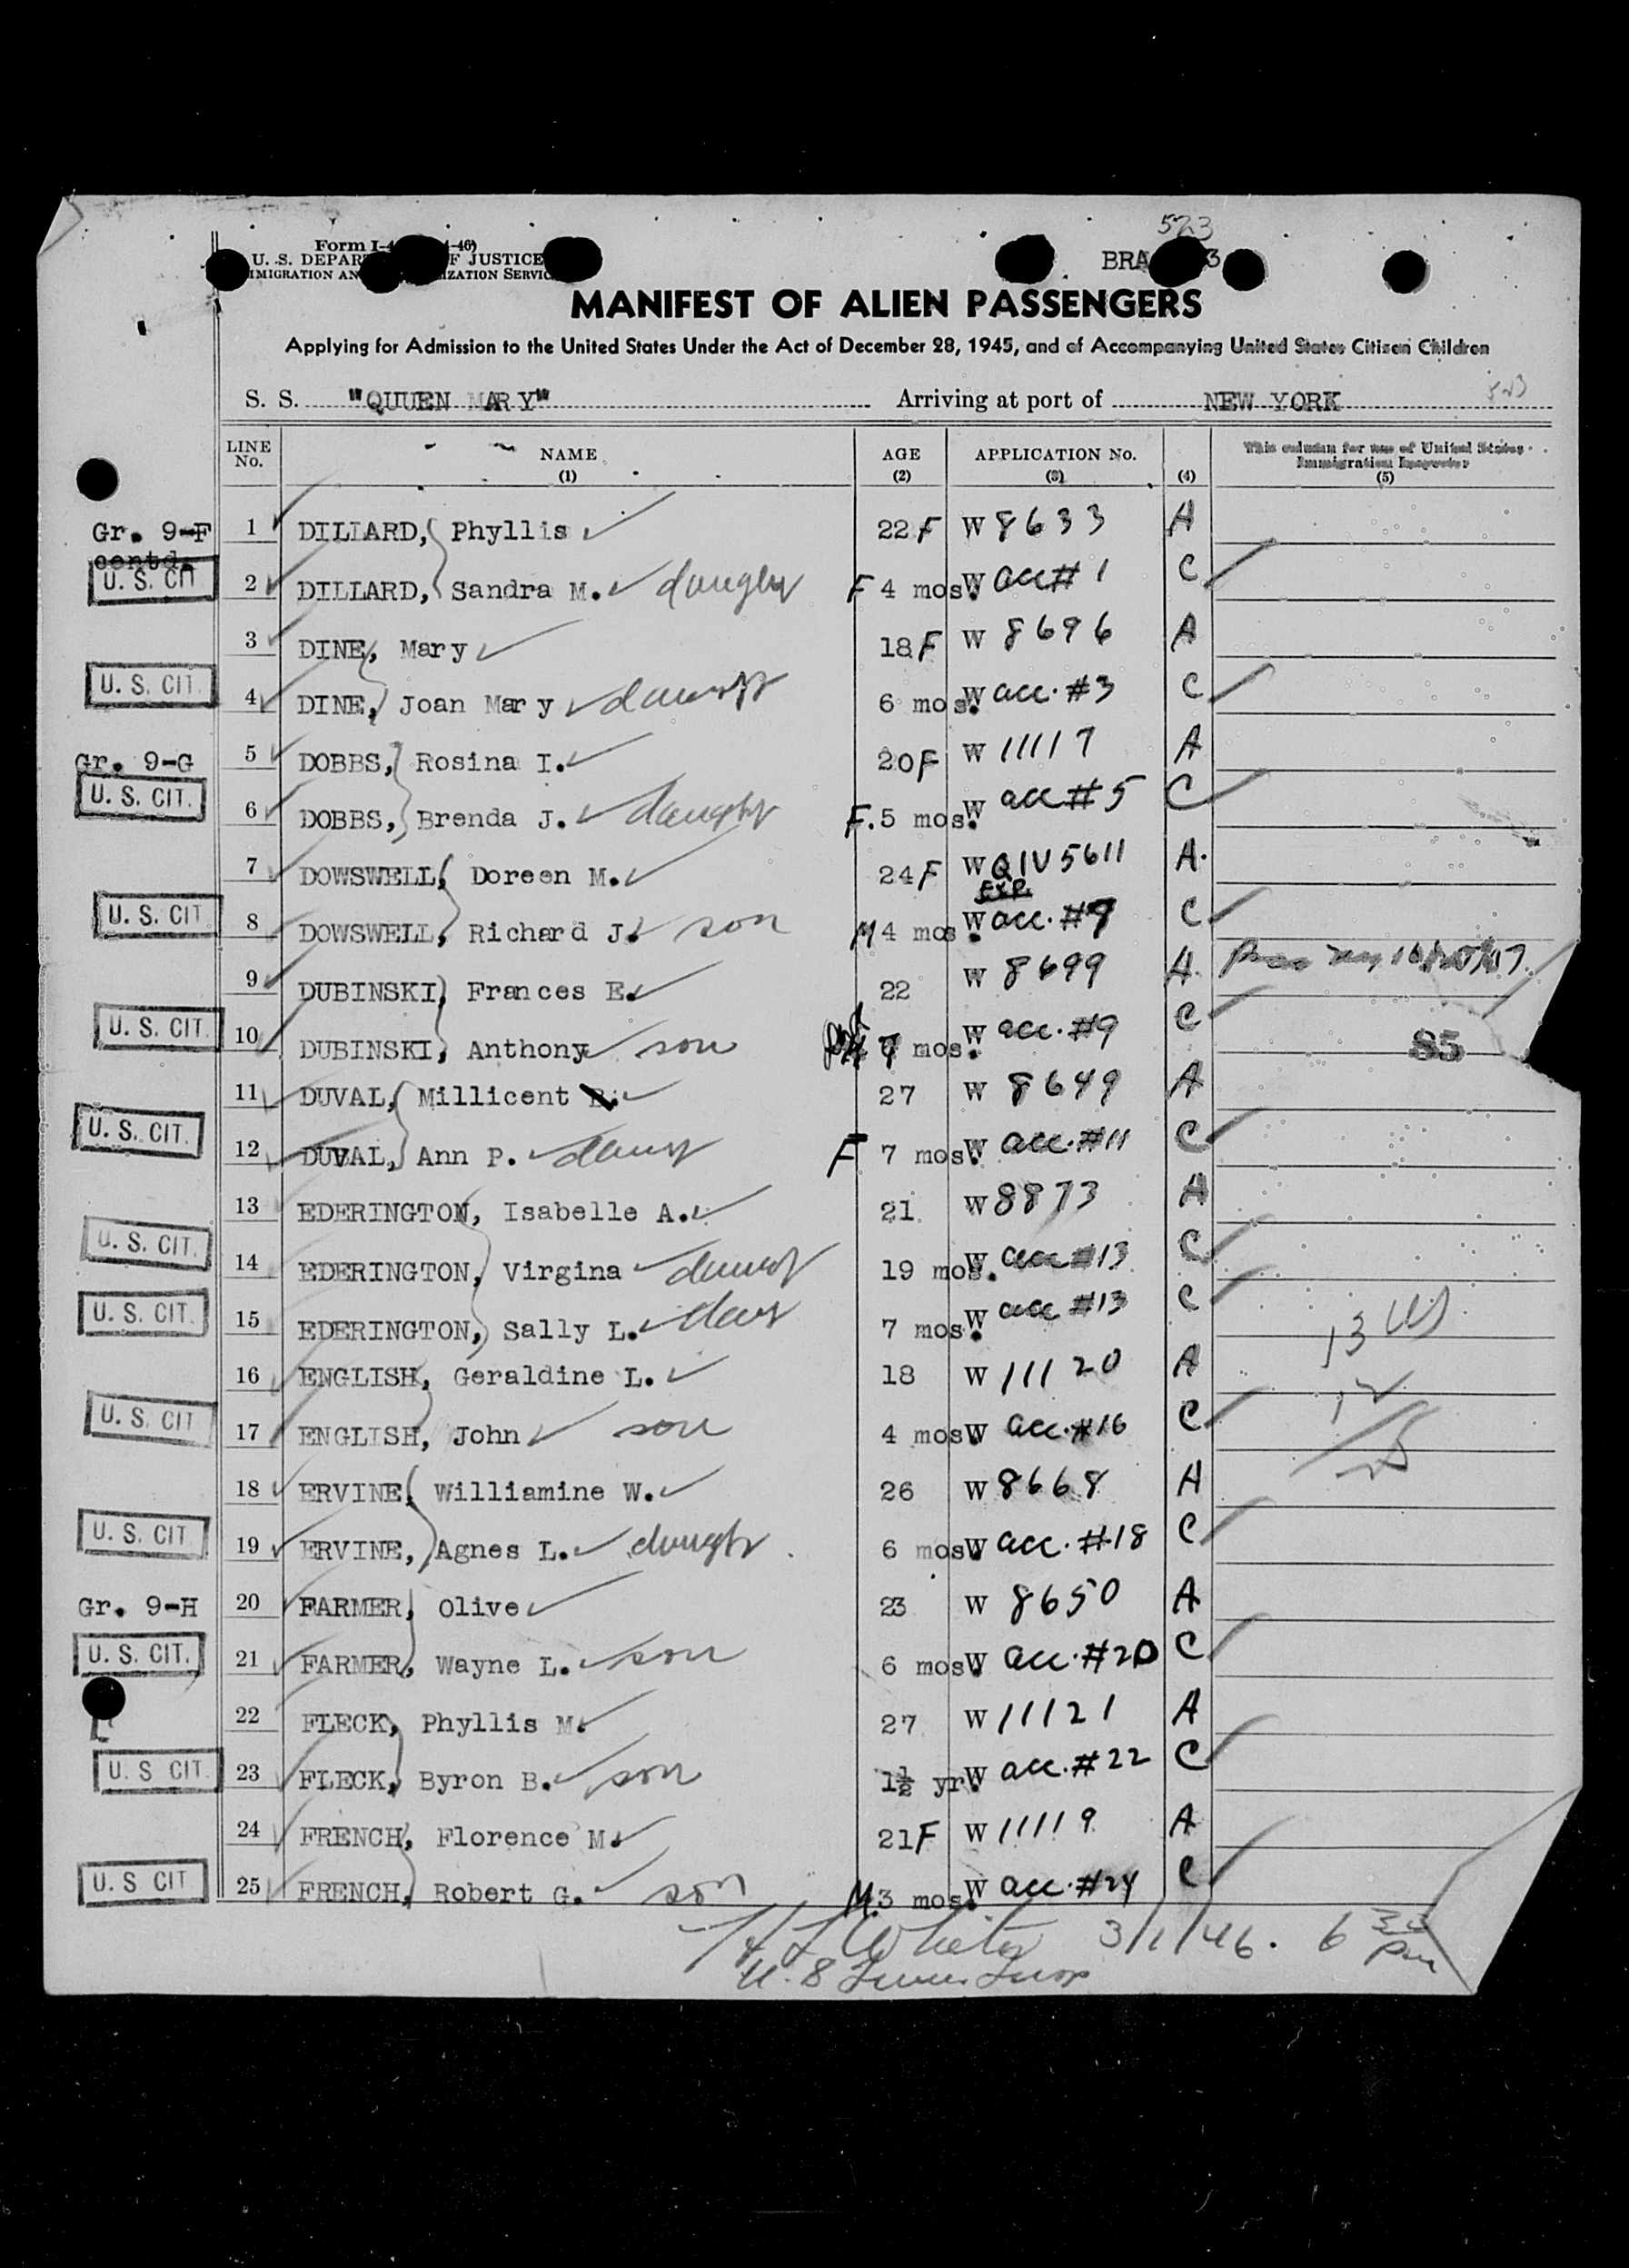 523
Form I-4 -46)
U. S. DEPAR F JUSTICE
IMIGRATION AN IZATION SERVIC
BRA 3
MANIFEST OF ALIEN PASSENGERS
Applying for Admission to the United States Under the Act of December 28, 1945, and of Accompanying United States Citizen Children
S. S. "QUUEN MARY" Arriving at port of NEW YORK 523
LINE No. NAME (1) AGE (2) APPLICATION No. (3) (4) This column for use of United States Immigration Inspector (5)
Gr. 9-F 1 DILLARD, Phyllis 22 F W 8633 A
contd.
U. S. CIT 2 DILLARD, Sandra M. daughter F 4 mos. W acc# 1 C
3 DINE, Mary 18 F W 8696 A
U. S. CIT. 4 DINE, Joan Mary 6 mos. W acc. #3 C
Gr. 9-G 5 DOBBS, Rosina I. 20 F W 11117 A
U. S. CIT. 6 DOBBS, Brenda J. daughter F. 5 mos. W acc #5 C
7 DOWSWELL, Doreen M. 24 F W QIV 5611 A.
EXP.
U. S. CIT 8 DOWSWELL, Richard J. son M 4 mos. W acc. #7 C
9 DUBINSKI, Frances E. 22 W 8699 A.
U. S. CIT. 10 DUBINSKI, Anthony son mos. W acc. #9 C 85
11 DUVAL, Millicent 27 W 8649 A
U. S. CIT. 12 DUVAL, Ann P. F 7 mos. W acc. #11 C
13 EDERINGTON, Isabelle A. 21 W 8873 A
U. S. CIT. 14 EDERINGTON, Virgina 19 mos. W acc #13 C
U. S. CIT. 15 EDERINGTON, Sally L. 7 mos. W acc #13 C
13 US
16 ENGLISH, Geraldine L. 18 W 11120 A
12
U. S. CIT 17 ENGLISH, John son 4 mos W acc. #16 C
25
18 ERVINE, Williamine W. 26 W 8668 A
U. S. CIT 19 ERVINE, Agnes L. daughter 6 mos. W acc. #18 C
Gr. 9-H 20 FARMER, Olive 23 W 8650 A
U. S. CIT. 21 FARMER, Wayne L. son 6 mos. W acc. #20 C
22 FLECK, Phyllis M. 27 W 11121 A
U. S CIT. 23 FLECK, Byron B. son 1½ yr. W acc. #22 C
24 FRENCH, Florence M. 21 F W 11119 A
U. S CIT 25 FRENCH, Robert G. son M. 3 mos. W acc. #24 C
3/1/46. 6 30 pm
U. S